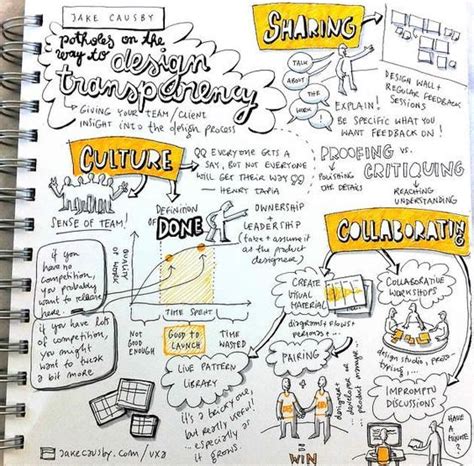 JAKE CAUSBY
potholes on the
way to design
transparency
GIVING YOUR TEAM/CLIENT
INSIGHT into the design process
SHARING
TALK
ABOUT
THE
WORK!
DESIGN WALL +
REGULAR FEEDBACK
SESSIONS
EXPLAIN!
BE SPECIFIC WHAT YOU
WANT FEEDBACK ON!
CULTURE
EVERYONE GETS A
SAY, BUT NOT EVERYONE
WILL GET THEIR WAY
— HENRY TAPIA
SENSE OF TEAM!
PROOFING vs.
CRITIQUING
POLISHING
THE DETAILS
REACHING
UNDERSTANDING
DEFINITION
OF DONE
OWNERSHIP
+
LEADERSHIP
(take + assume it
as the product
designer)
if you
have no
competition,
you probably
want to release
here.
if you have lots
of competition,
you might
want to tweak
a bit more.
QUALITY
OF WORK
TIME SPENT
NOT
GOOD
ENOUGH
GOOD TO
LAUNCH
TIME
WASTED
COLLABORATING
CREATE
VISUAL
MATERIAL
diagrams + flows +
personas + ...
COLLABORATIVE
WORKSHOPS
design studio, pro-
typing...
PAIRING
designer +
developer or
designer +
product
= WIN
IMPROMPTU
DISCUSSIONS
HAVE
A
MINUTE?
LIVE PATTERN
LIBRARY
it's a tricky one
but really useful!
... especially as
it grows.
jakecausby.com/ux8